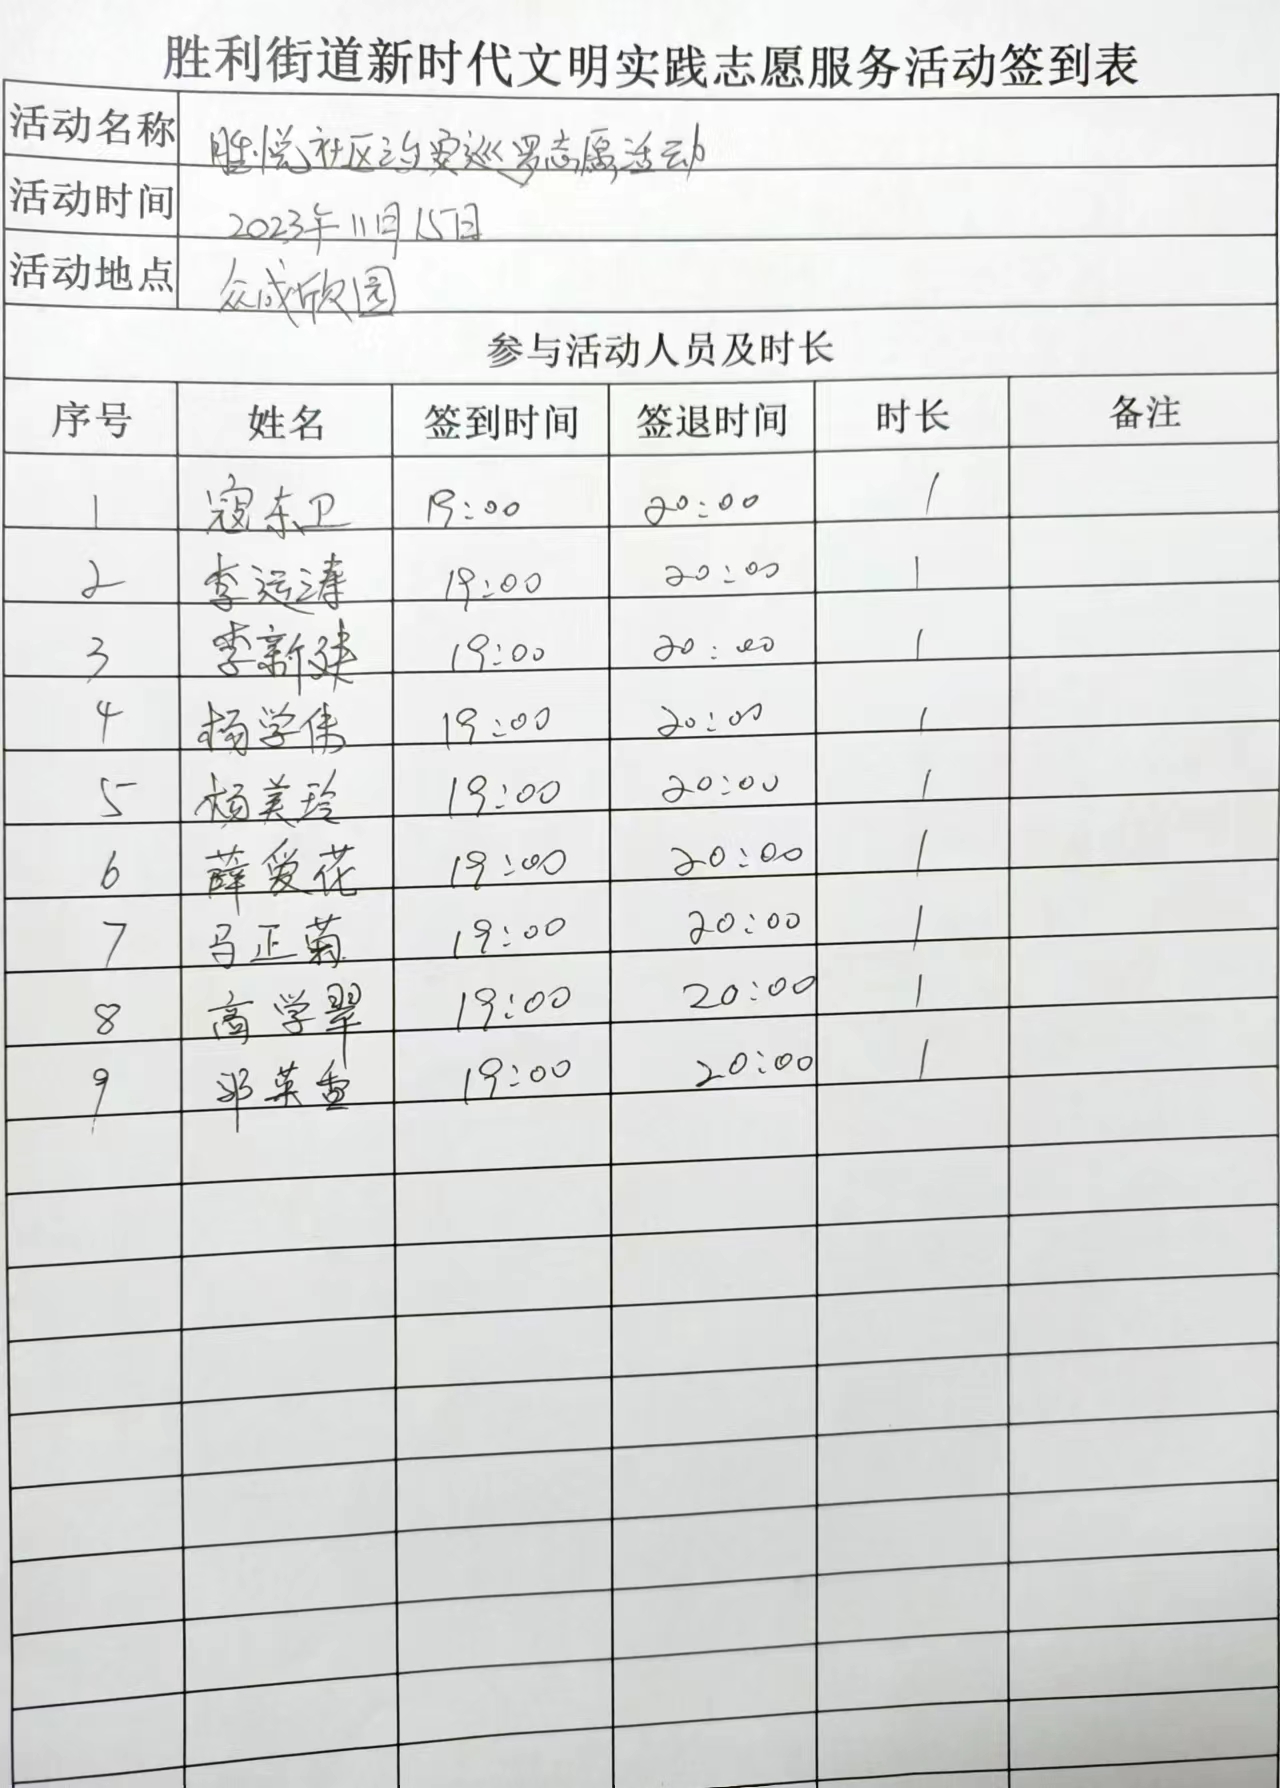 胜利街道新时代文明实践志愿服务活动签到表
活动名称 胜悦社区治安巡逻志愿活动
活动时间 2023年11月15日
活动地点 众成欣园
参与活动人员及时长
序号 姓名 签到时间 签退时间 时长 备注
1 寇东卫 19:00 20:00 1
2 李运涛 19:00 20:00 1
3 李新建 19:00 20:00 1
4 杨学伟 19:00 20:00 1
5 杨美玲 19:00 20:00 1
6 薛爱花 19:00 20:00 1
7 马正菊 19:00 20:00 1
8 高学翠 19:00 20:00 1
9 邓英香 19:00 20:00 1